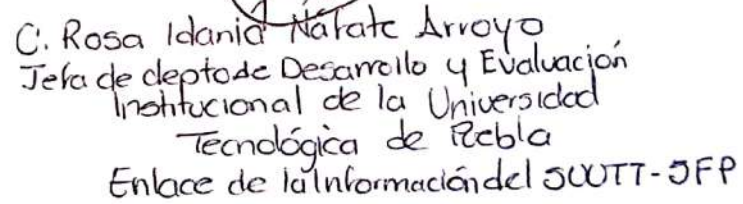 C. Rosa Idania Nafate Arroyo
Jefa de depto de Desarrollo y Evaluación
Institucional de la Universidad
Tecnológica de Puebla
Enlace de la Información del